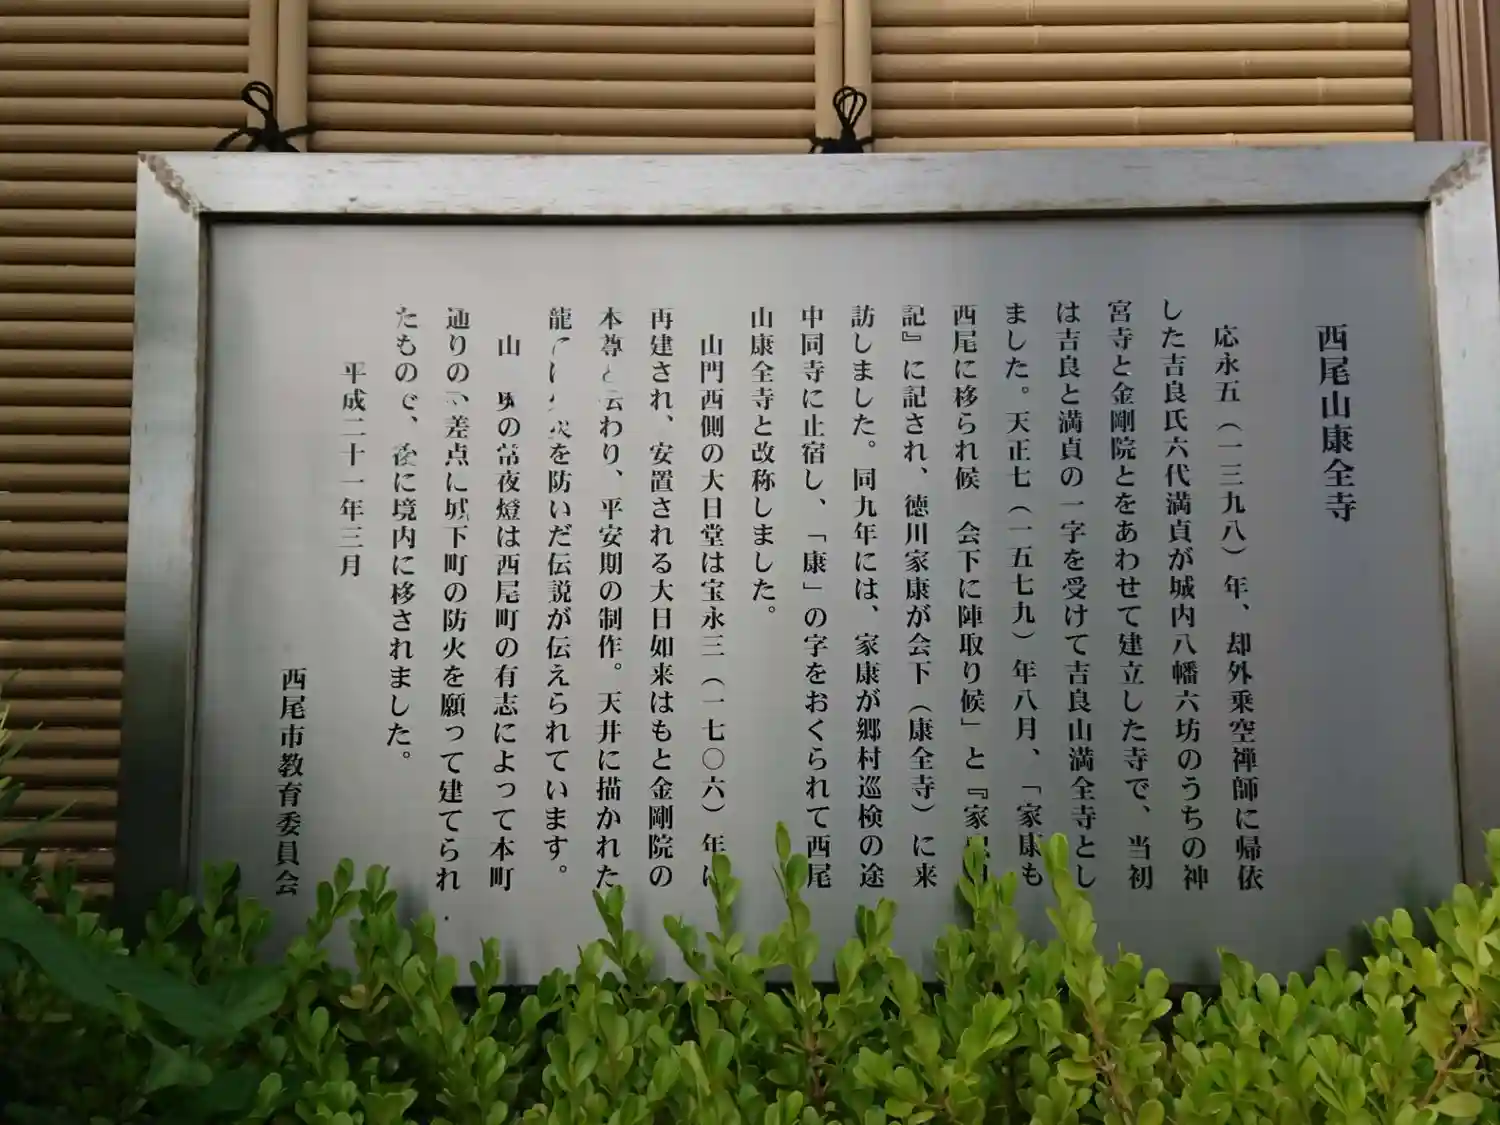 西尾山康全寺
応永五（一三九八）年、却外乗空禅師に帰依
した吉良氏六代満貞が城内八幡六坊のうちの神
宮寺と金剛院とをあわせて建立した寺で、当初
は吉良と満貞の一字を受けて吉良山満全寺とし
ました。天正七（一五七九）年八月、「家康も
西尾に移られ候 会下に陣取り候」と『家
記』に記され、徳川家康が会下（康全寺）に来
訪しました。同九年には、家康が郷村巡検の途
中同寺に止宿し、「康」の字をおくられて西尾
山康全寺と改称しました。
山門西側の大日堂は宝永三（一七〇六）年に
再建され、安置される大日如来はもと金剛院の
本尊と伝わり、平安期の制作。天井に描かれた
龍 を防いだ伝説が伝えられています。
山 の常夜燈は西尾町の有志によって本町
通りの 差点に城下町の防火を願って建てられ
たもので、後に境内に移されました。
平成二十一年三月
西尾市教育委員会